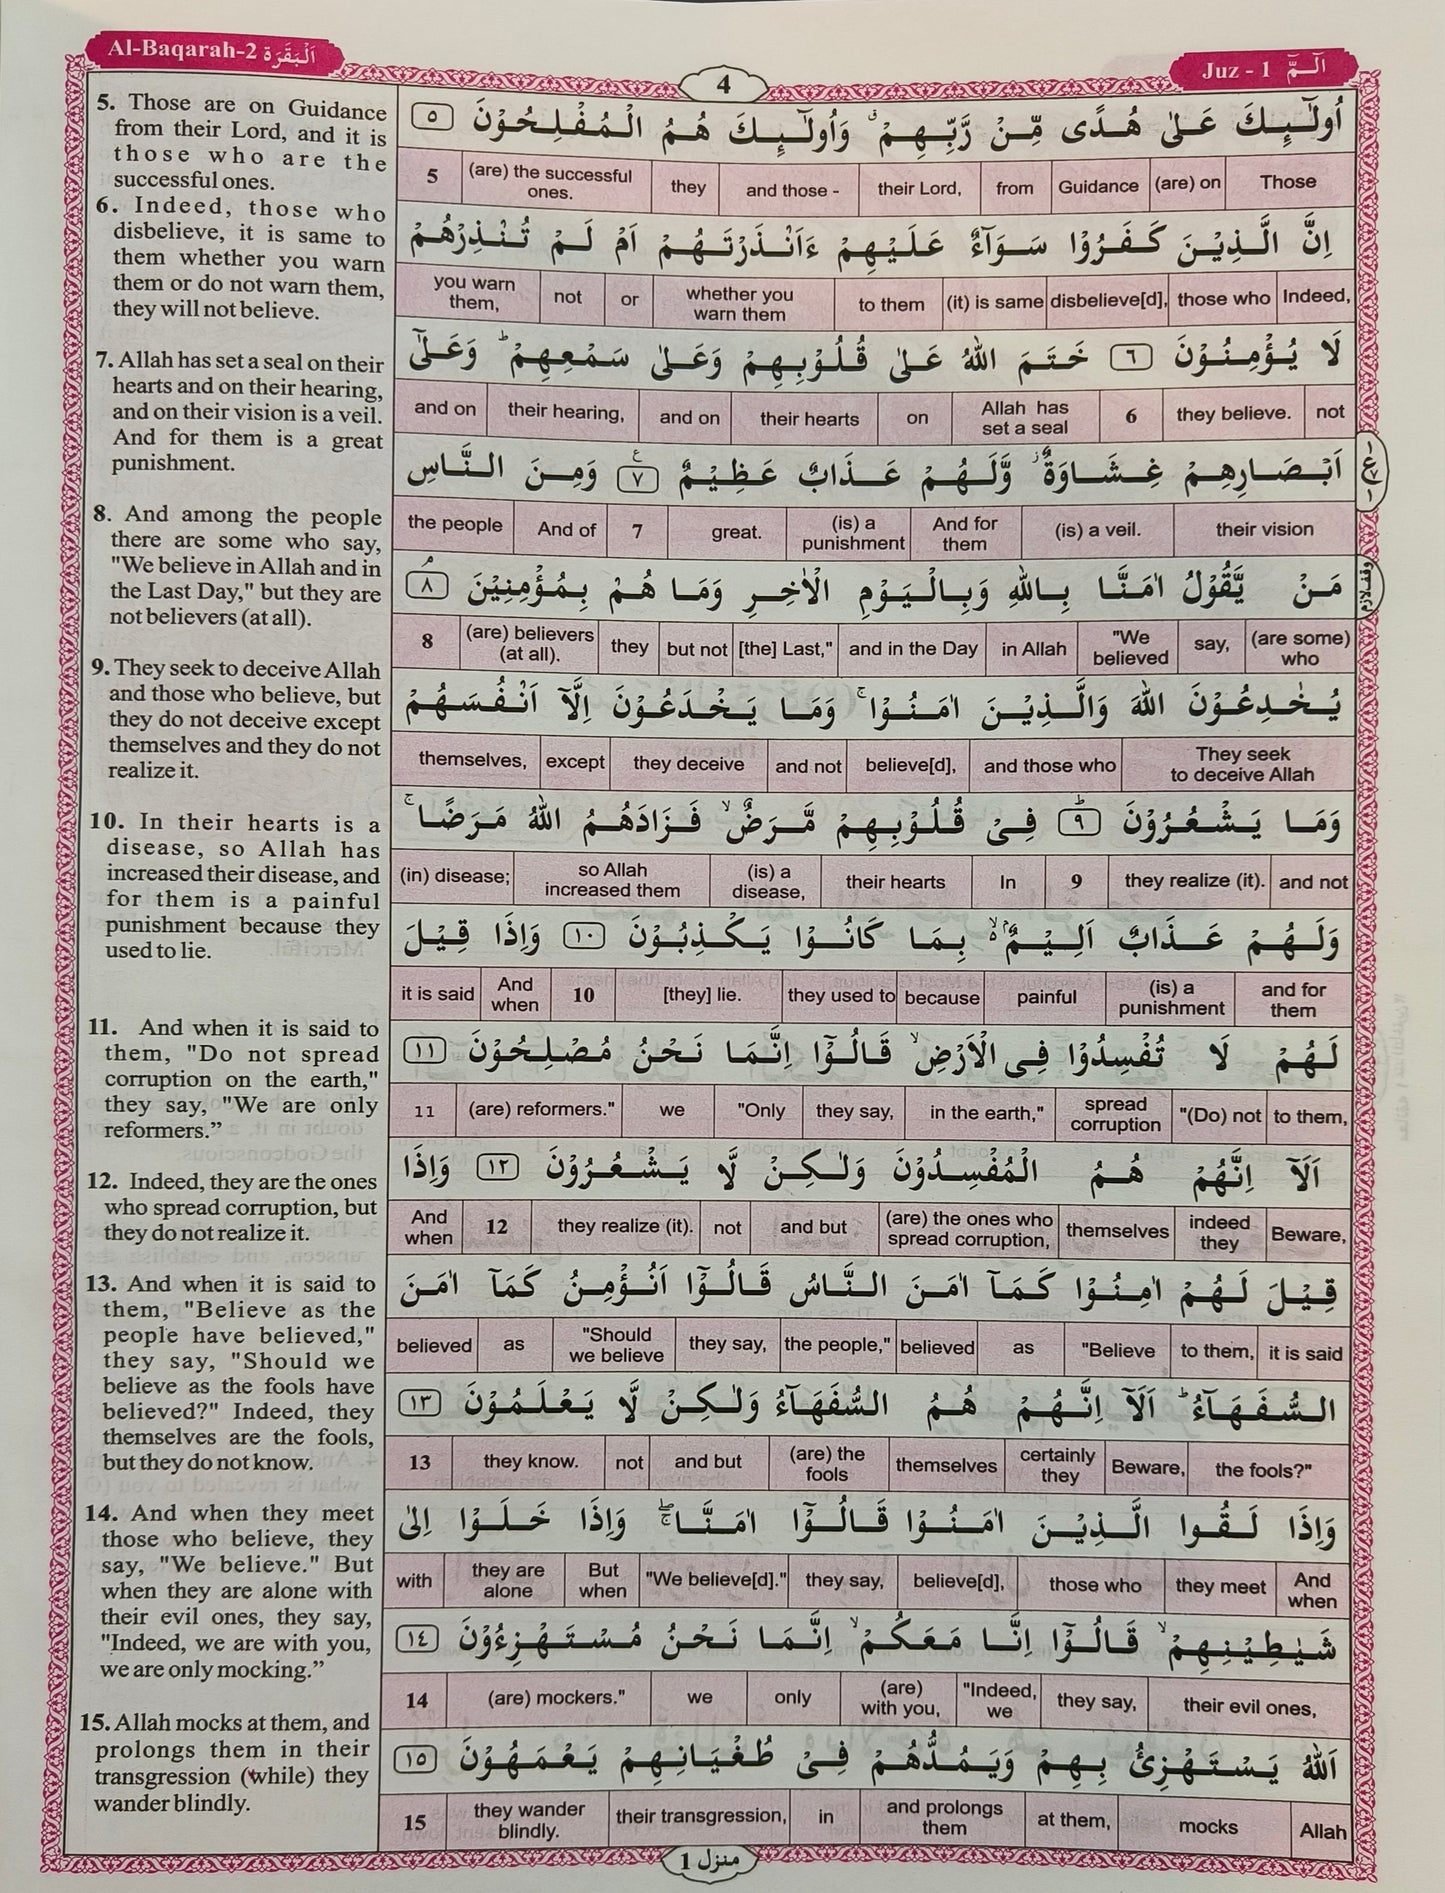 Al-Baqarah-2 اَلْبَقَرَة
4
Juz - 1 الٓمّٓ
5. Those are on Guidance
from their Lord, and it is
those who are the
successful ones.
6. Indeed, those who
disbelieve, it is same to
them whether you warn
them or do not warn them,
they will not believe.
7. Allah has set a seal on their
hearts and on their hearing,
and on their vision is a veil.
And for them is a great
punishment.
8. And among the people
there are some who say,
"We believe in Allah and in
the Last Day," but they are
not believers (at all).
9. They seek to deceive Allah
and those who believe, but
they do not deceive except
themselves and they do not
realize it.
10. In their hearts is a
disease, so Allah has
increased their disease, and
for them is a painful
punishment because they
used to lie.
11. And when it is said to
them, "Do not spread
corruption on the earth,"
they say, "We are only
reformers.”
12. Indeed, they are the ones
who spread corruption, but
they do not realize it.
13. And when it is said to
them, "Believe as the
people have believed,"
they say, "Should we
believe as the fools have
believed?" Indeed, they
themselves are the fools,
but they do not know.
14. And when they meet
those who believe, they
say, "We believe." But
when they are alone with
their evil ones, they say,
"Indeed, we are with you,
we are only mocking.”
15. Allah mocks at them, and
prolongs them in their
transgression (while) they
wander blindly.
اُولٰٓئِكَ عَلٰى هُدًى مِّنْ رَّبِّهِمْ ۗ وَاُولٰٓئِكَ هُمُ الْمُفْلِحُوْنَ ٥
Those (are) on Guidance from their Lord, and those - they (are) the successful ones. 5
اِنَّ الَّذِيْنَ كَفَرُوْا سَوَآءٌ عَلَيْهِمْ ءَاَنْذَرْتَهُمْ اَمْ لَمْ تُنْذِرْهُمْ
Indeed, those who disbelieve[d], (it) is same to them whether you warn them or not you warn them,
لَا يُؤْمِنُوْنَ ٦ خَتَمَ اللّٰهُ عَلٰى قُلُوْبِهِمْ وَعَلٰى سَمْعِهِمْ ؕ وَعَلٰٓى
not they believe. 6 Allah has set a seal on their hearts and on their hearing, and on
اَبْصَارِهِمْ غِشَاوَةٌ ز وَّلَهُمْ عَذَابٌ عَظِيْمٌ ٧ ع وَمِنَ النَّاسِ
their vision (is) a veil. And for them (is) a punishment great. 7 And of the people
مَنْ يَّقُوْلُ اٰمَنَّا بِاللّٰهِ وَبِالْيَوْمِ الْاٰخِرِ وَمَا هُمْ بِمُؤْمِنِيْنَ ٨ م
(are some) who say, "We believed in Allah and in the Day [the] Last," but not they (are) believers (at all). 8
وقف لازم
يُخٰدِعُوْنَ اللّٰهَ وَالَّذِيْنَ اٰمَنُوْا ۚ وَمَا يَخْدَعُوْنَ اِلَّآ اَنْفُسَهُمْ
They seek to deceive Allah and those who believe[d], and not they deceive except themselves,
وَمَا يَشْعُرُوْنَ ٩ ؕ فِىْ قُلُوْبِهِمْ مَّرَضٌ ۙ فَزَادَهُمُ اللّٰهُ مَرَضًا ۚ
and not they realize (it). 9 In their hearts (is) a disease, so Allah increased them (in) disease;
وَلَهُمْ عَذَابٌ اَلِيْمٌ ۙ۬ بِمَا كَانُوْا يَكْذِبُوْنَ ١٠ وَاِذَا قِيْلَ
and for them (is) a punishment painful because they used to [they] lie. 10 And when it is said
لَهُمْ لَا تُفْسِدُوْا فِى الْاَرْضِ ۙ قَالُوْٓا اِنَّمَا نَحْنُ مُصْلِحُوْنَ ١١
to them, "(Do) not spread corruption in the earth," they say, "Only we (are) reformers." 11
اَلَآ اِنَّهُمْ هُمُ الْمُفْسِدُوْنَ وَلٰكِنْ لَّا يَشْعُرُوْنَ ١٢ وَاِذَا
Beware, indeed they themselves (are) the ones who spread corruption, and but not they realize (it). 12 And when
قِيْلَ لَهُمْ اٰمِنُوْا كَمَآ اٰمَنَ النَّاسُ قَالُوْٓا اَنُؤْمِنُ كَمَآ اٰمَنَ
it is said to them, "Believe as believed the people," they say, "Should we believe as believed
السُّفَهَآءُ ؕ اَلَآ اِنَّهُمْ هُمُ السُّفَهَآءُ وَلٰكِنْ لَّا يَعْلَمُوْنَ ١٣
the fools?" Beware, certainly they themselves (are) the fools and but not they know. 13
وَاِذَا لَقُوا الَّذِيْنَ اٰمَنُوْا قَالُوْٓا اٰمَنَّا ۖۚ وَاِذَا خَلَوْا اِلٰى
And when they meet those who believe[d], they say, "We believe[d]." But when they are alone with
شَيٰطِيْنِهِمْ ۙ قَالُوْٓا اِنَّا مَعَكُمْ ۙ اِنَّمَا نَحْنُ مُسْتَهْزِءُوْنَ ١٤
their evil ones, they say, "Indeed, we (are) with you, only we (are) mockers." 14
اَللّٰهُ يَسْتَهْزِئُ بِهِمْ وَيَمُدُّهُمْ فِىْ طُغْيَانِهِمْ يَعْمَهُوْنَ ١٥
Allah mocks at them, and prolongs them in their transgression, they wander blindly. 15
منزل 1